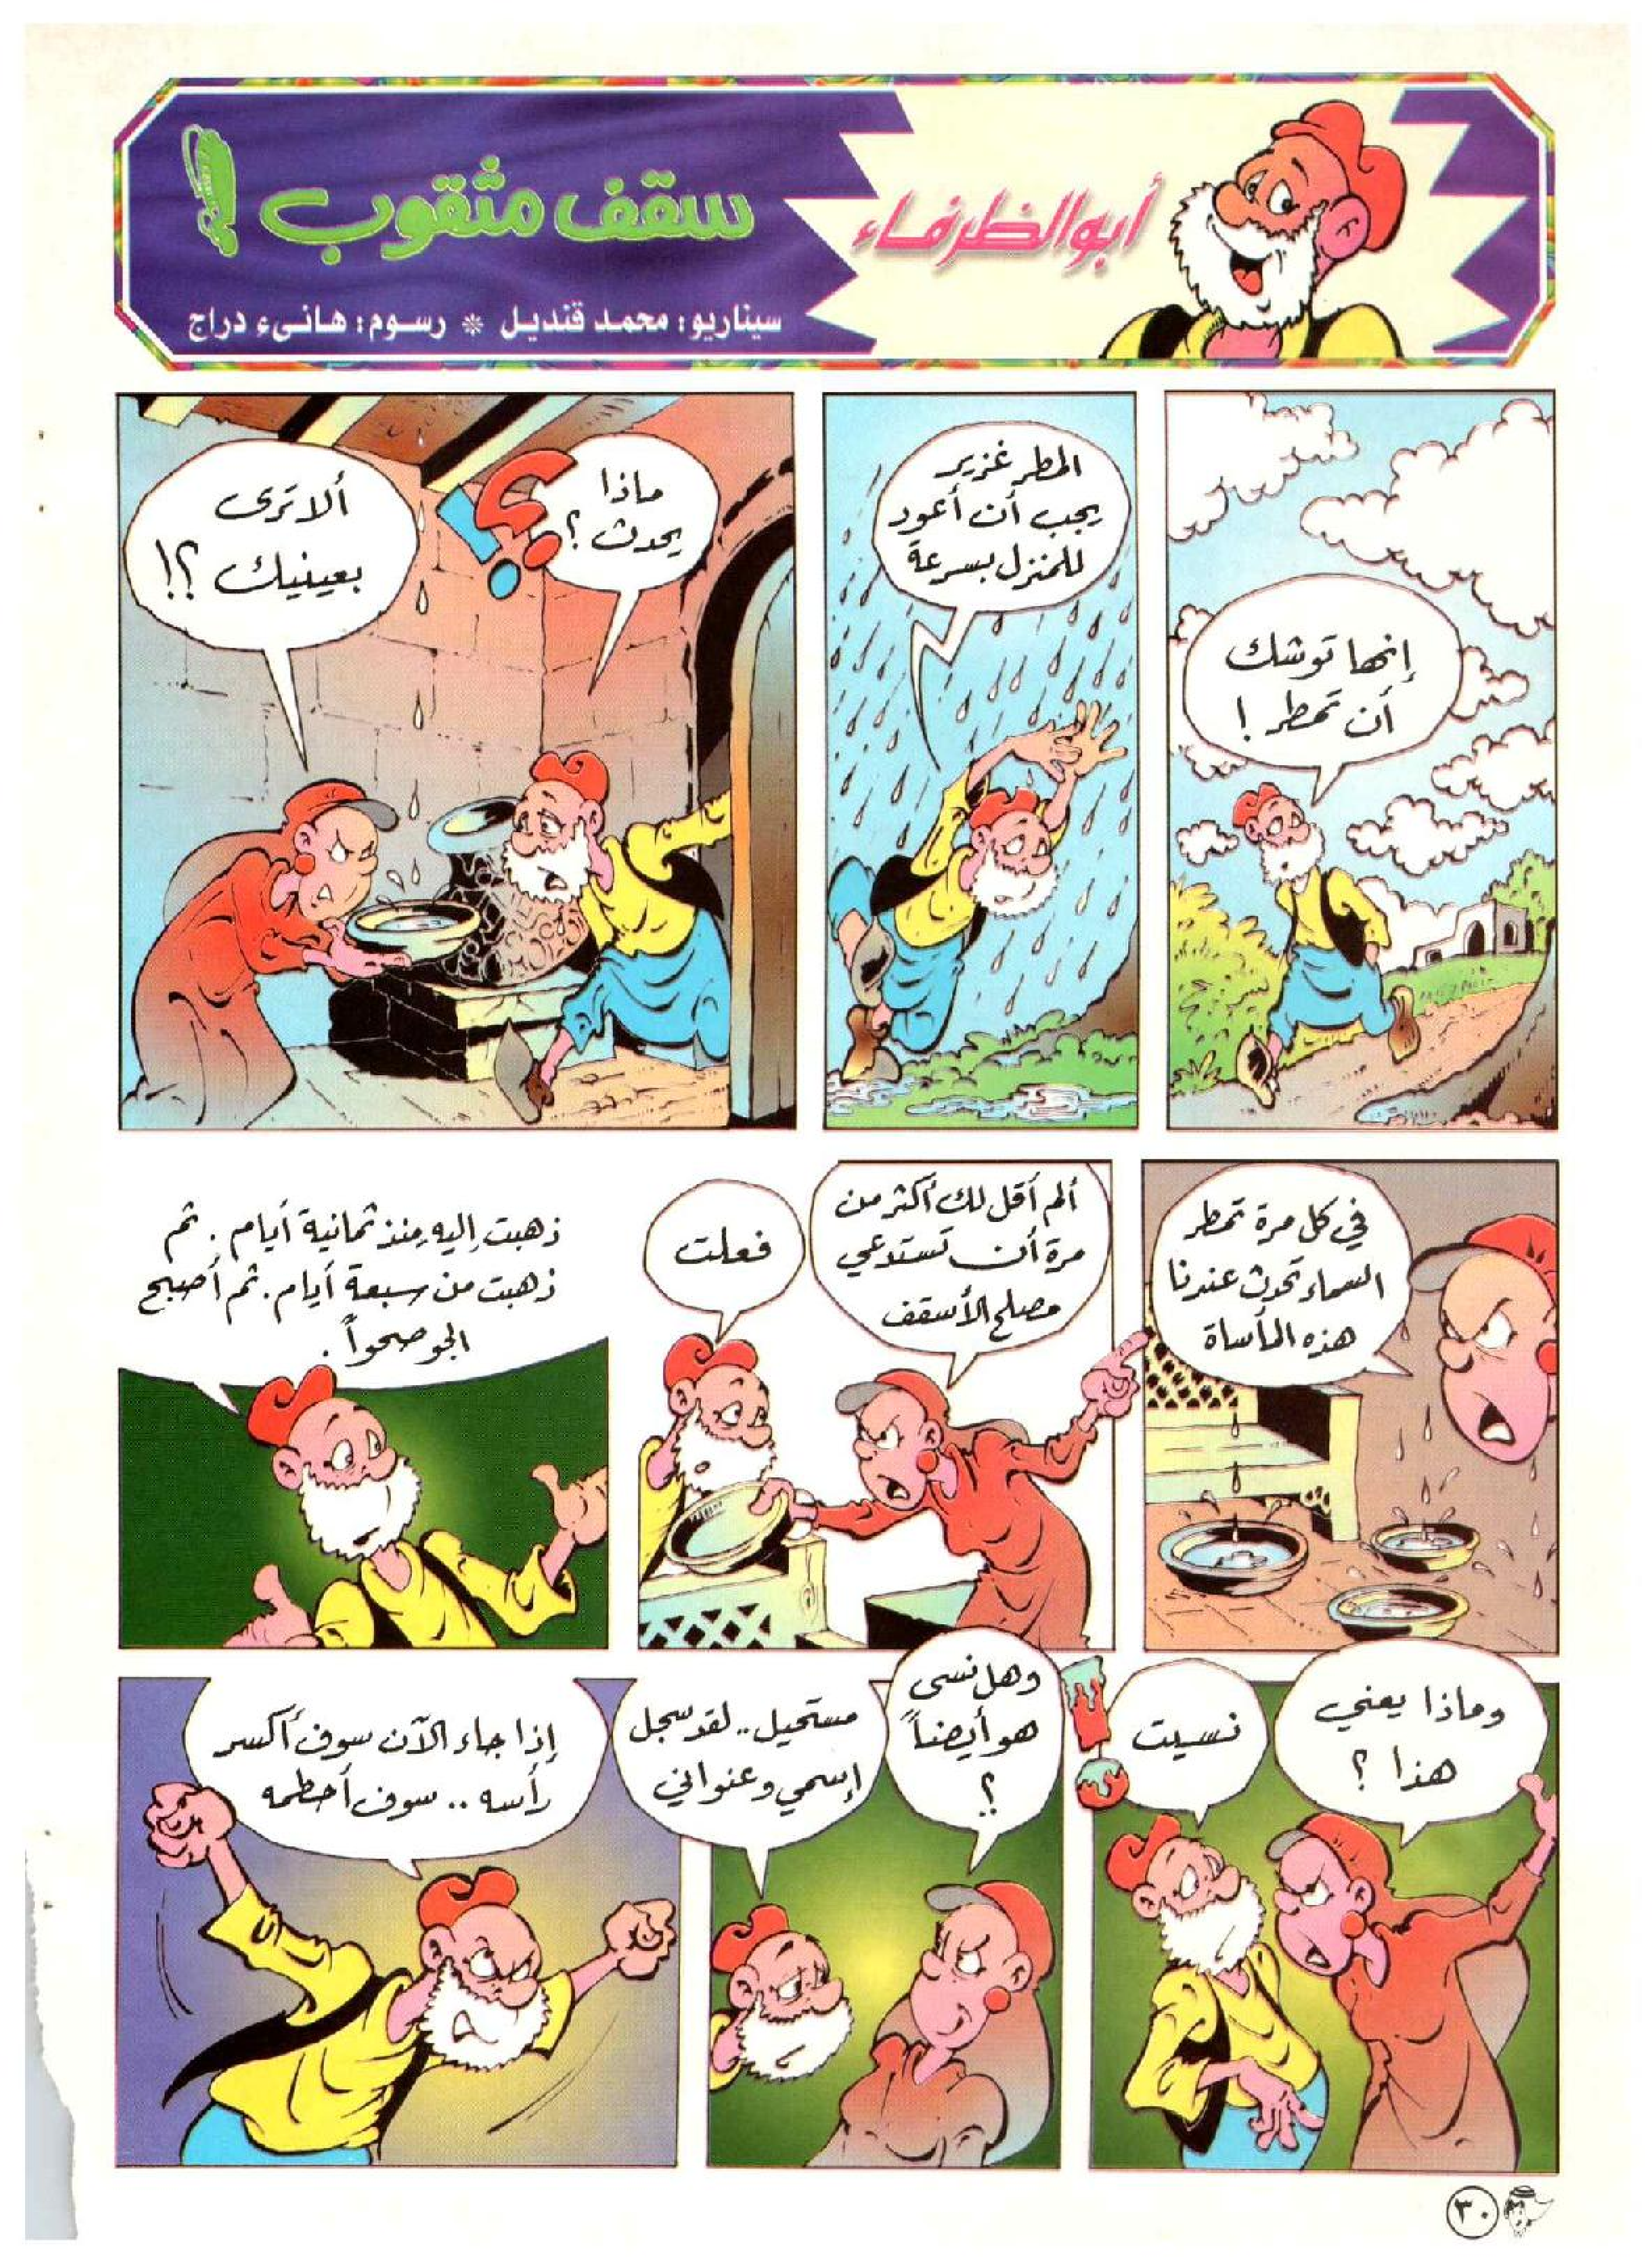 أبو الظرفاء
سقف مثقوب!
سيناريو: محمد قنديل * رسوم: هانىء دراج
إنها توشك
أن تمطر !
المطر غزير
يجب أن أعود
للمنزل بسرعة
ماذا
يحدث ؟
؟!
ألا ترى
بعينيك ؟!
في كل مرة تمطر
السماء تحدث عندنا
هذه المأساة
ألم أقل لك أكثر من
مرة أن تستدعي
مصلح الأسقف
فعلت
ذهبت إليه منذ ثمانية أيام . ثم
ذهبت من سبعة أيام . ثم أصبح
الجو صحواً .
وماذا يعني
هذا ؟
نسيت
!
وهل نسى
هو أيضاً
؟
مستحيل .. لقد سجل
إسمي وعنواني
إذا جاء الآن سوف أكسر
رأسه .. سوف أحطمه
٣٠